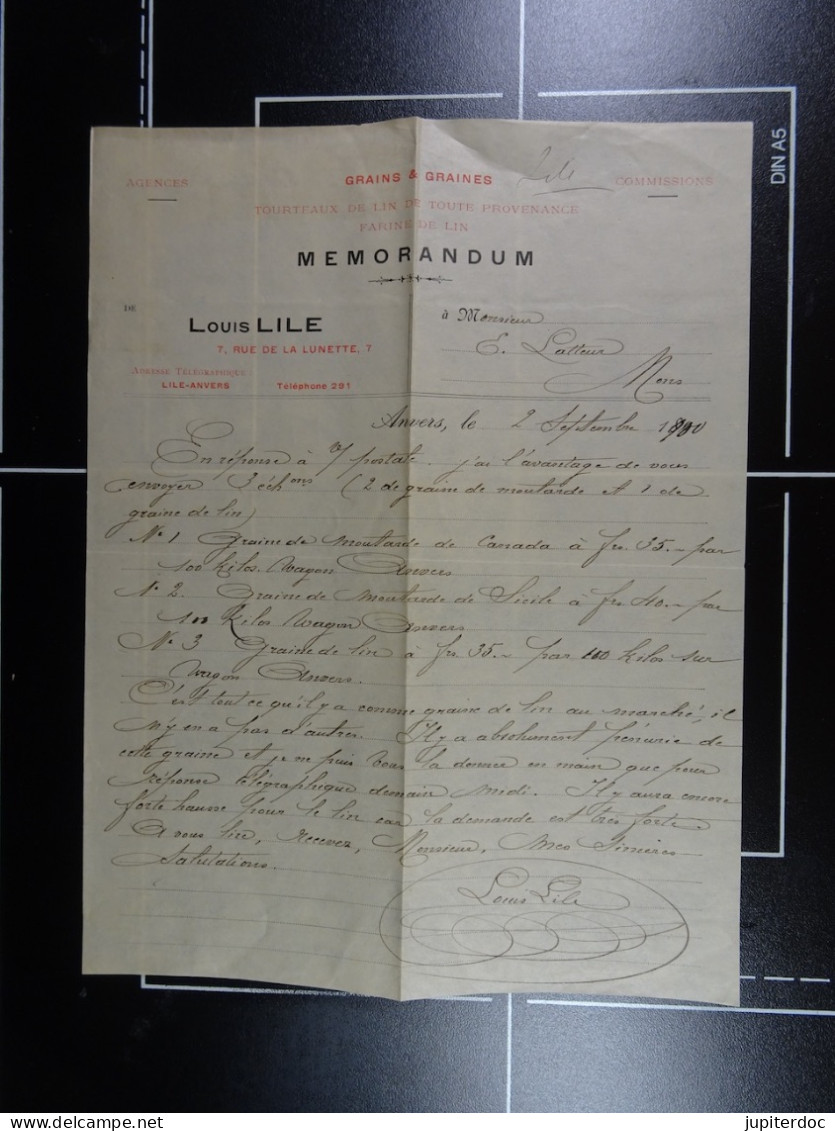 Lile
AGENCES
GRAINS & GRAINES
COMMISSIONS
TOURTEAUX DE LIN DE TOUTE PROVENANCE
FARINE DE LIN
MEMORANDUM
DE
Louis LILE
7, RUE DE LA LUNETTE, 7
Adresse Télégraphique
LILE-ANVERS
Téléphone 291
à Monsieur
E. Latteur
Mons
Anvers, le 2 Septembre 1900
En réponse à v/ postale j'ai l'avantage de vous
envoyer 3 échons (2 de graine de moutarde et 1 de
graine de lin)
No 1 Graine de Moutarde de Canada à frs. 35.- par
100 kilos. Wagon Anvers
No 2. Graine de Moutarde de Sicile à frs 40.- par
100 Kilos Wagon Anvers
No 3 Graine de lin à fr. 35.- par 100 kilos sur
Wagon Anvers.
C'est tout ce qu'il y a comme graine de lin au marché, il
n'y en a pas d'autres. Il y a absolument pénurie de
cette graine et je ne puis vous la donner en main que pour
réponse télégraphique demain Midi. Il y aura encore
forte hausse pour le lin car la demande est très forte.
A vous lire, recevez, Monsieur, Mes Sincères
Salutations.
Louis Lile
DIN A5
jupiterdoc